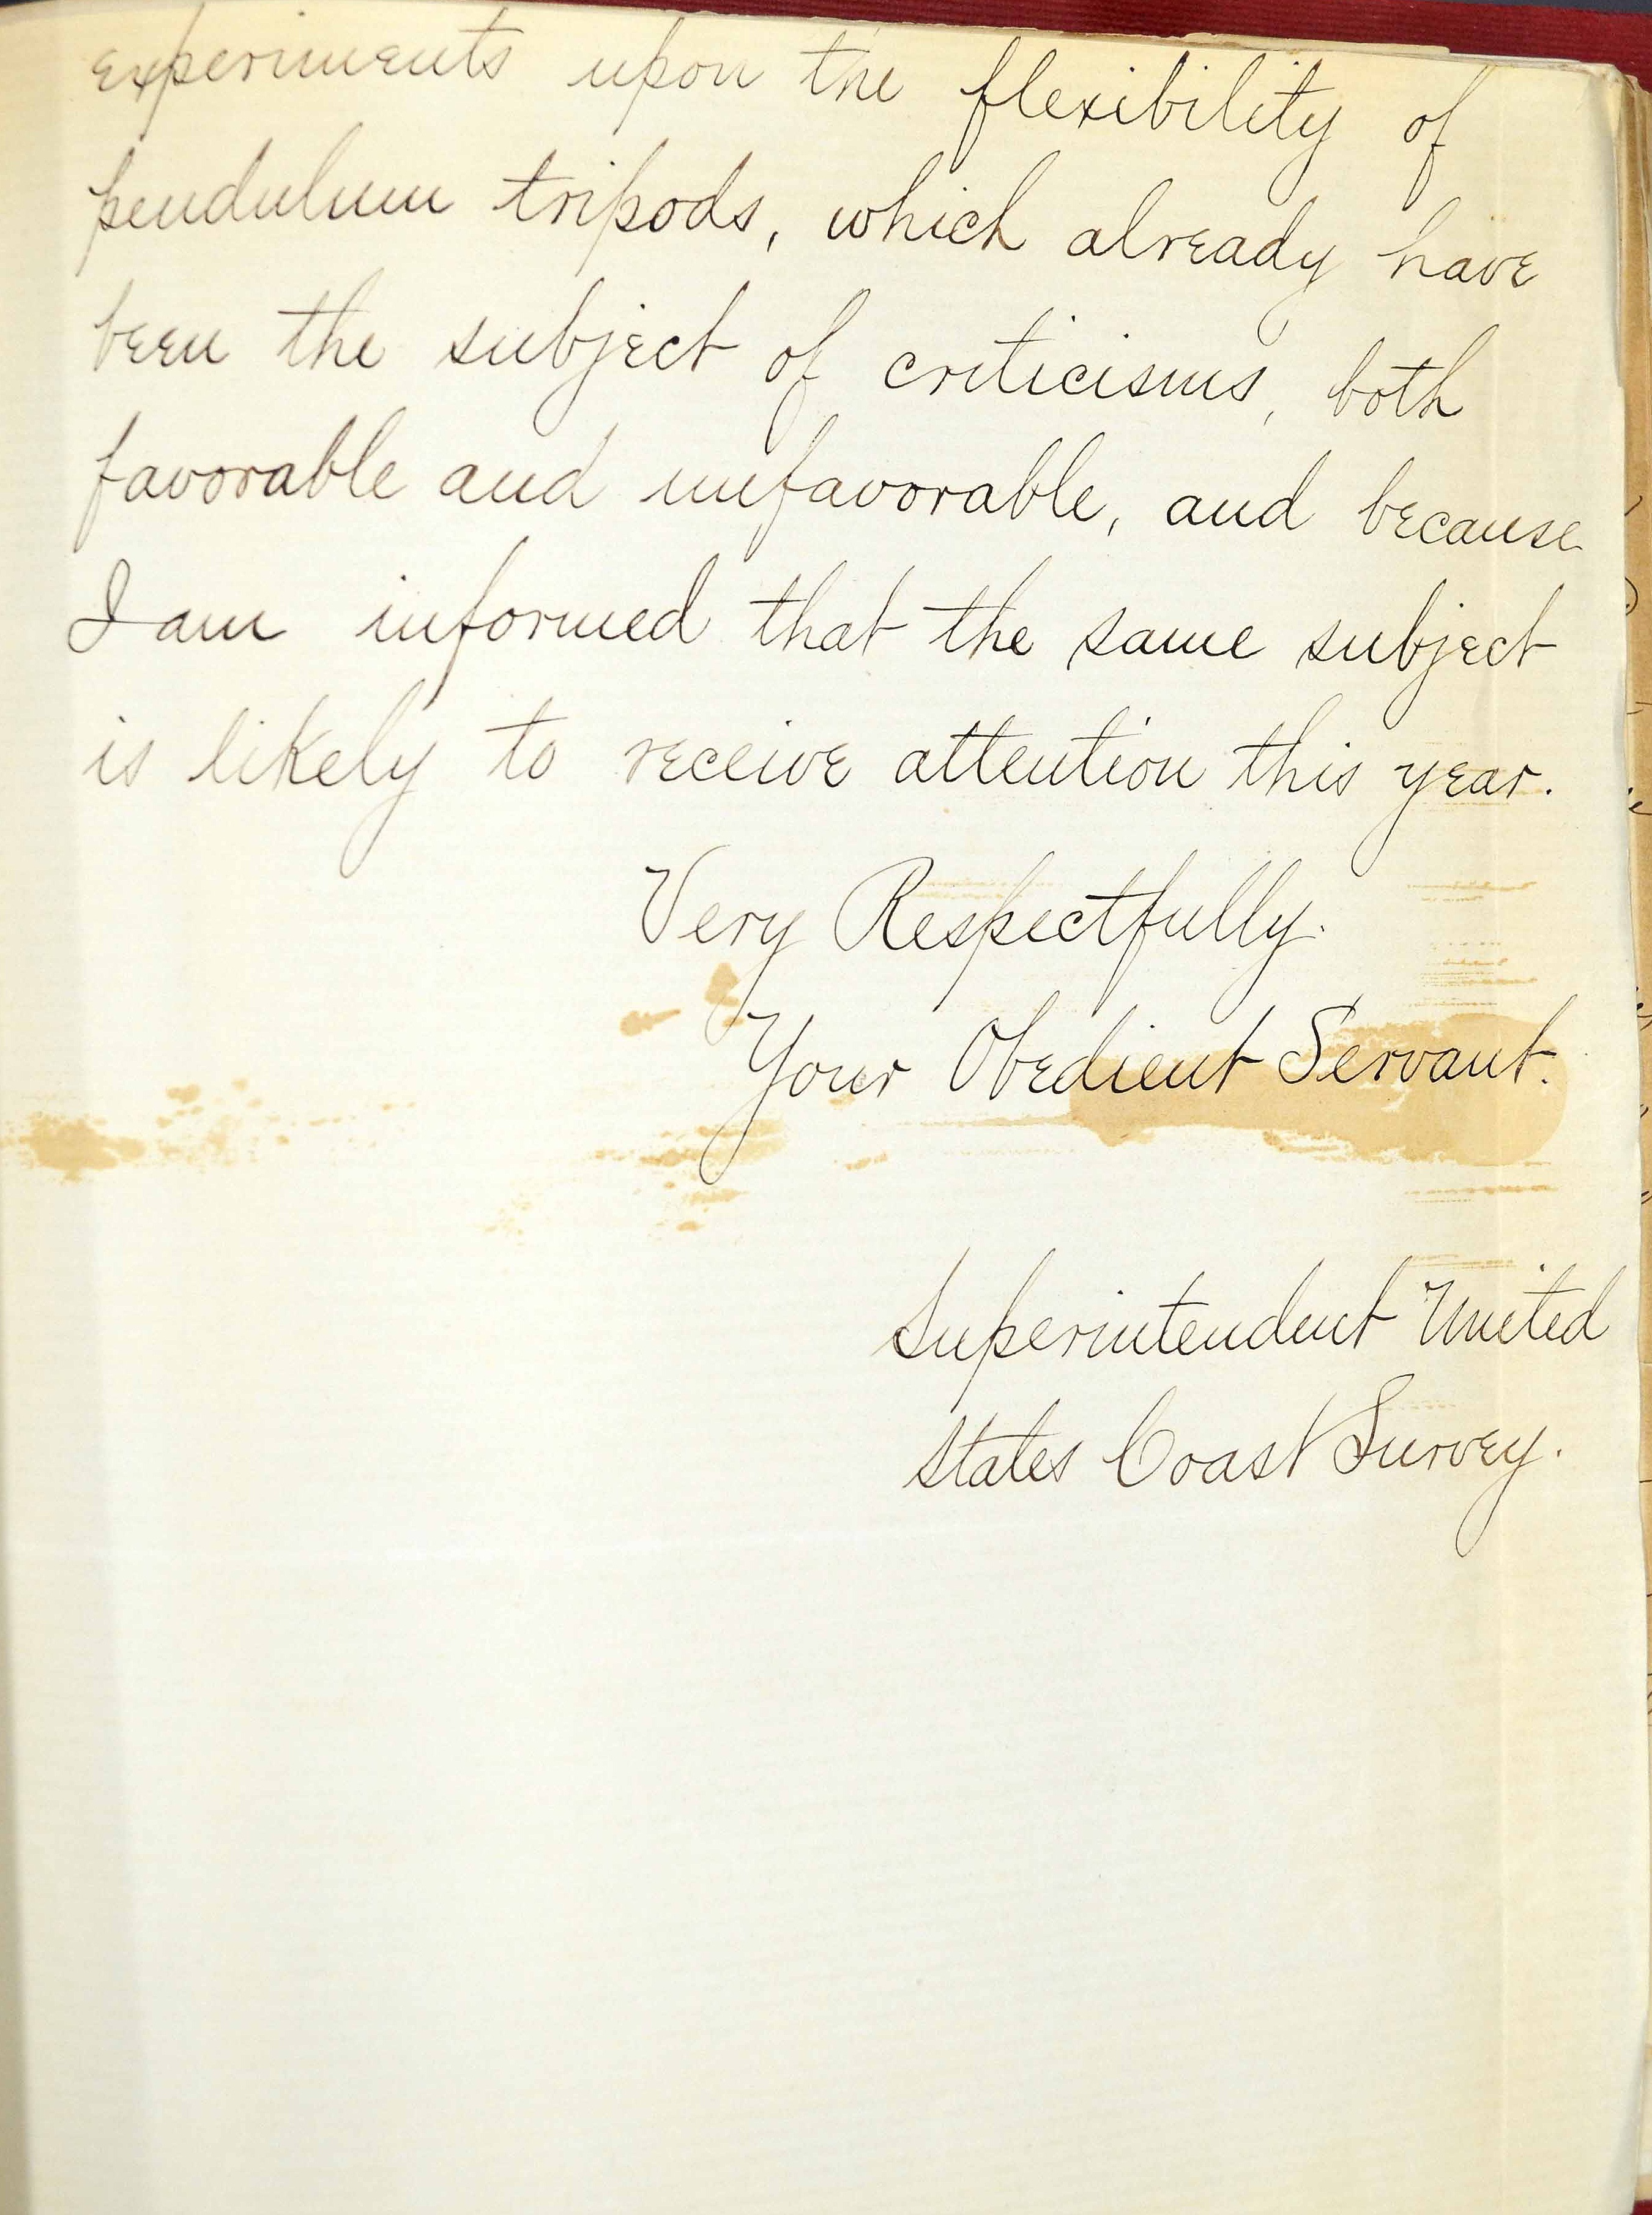 experiments upon the flexibility of
pendulum tripods, which already have
been the subject of criticisms, both
favorable and unfavorable, and because
I am informed that the same subject
is likely to receive attention this year.
Very Respectfully.
Your Obedient Servant.
Superintendent United
States Coast Survey.